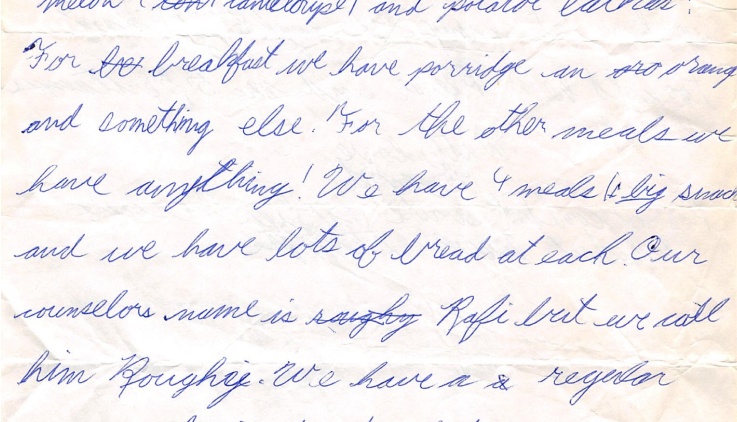 melon (cantaloupe) and potatoe latkas!
For breakfast we have porridge an orang
and something else! For the other meals we
have anything! We have 4 meals 1 big snack
and we have lots of bread at each. Our
counselors name is Rafi but we call
him Roughie. We have a regular